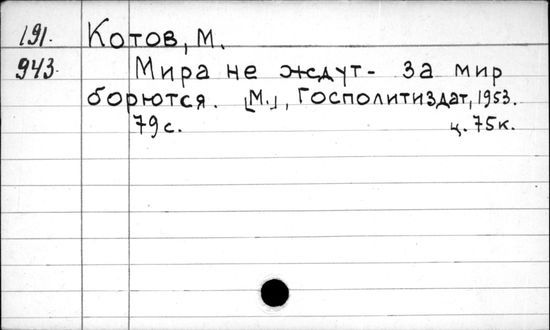 191. Котов, М.
943. Мира не ждут - за мир
борются. [М.], Госполитиздат, 1953.
79 с. ц. 75 к.